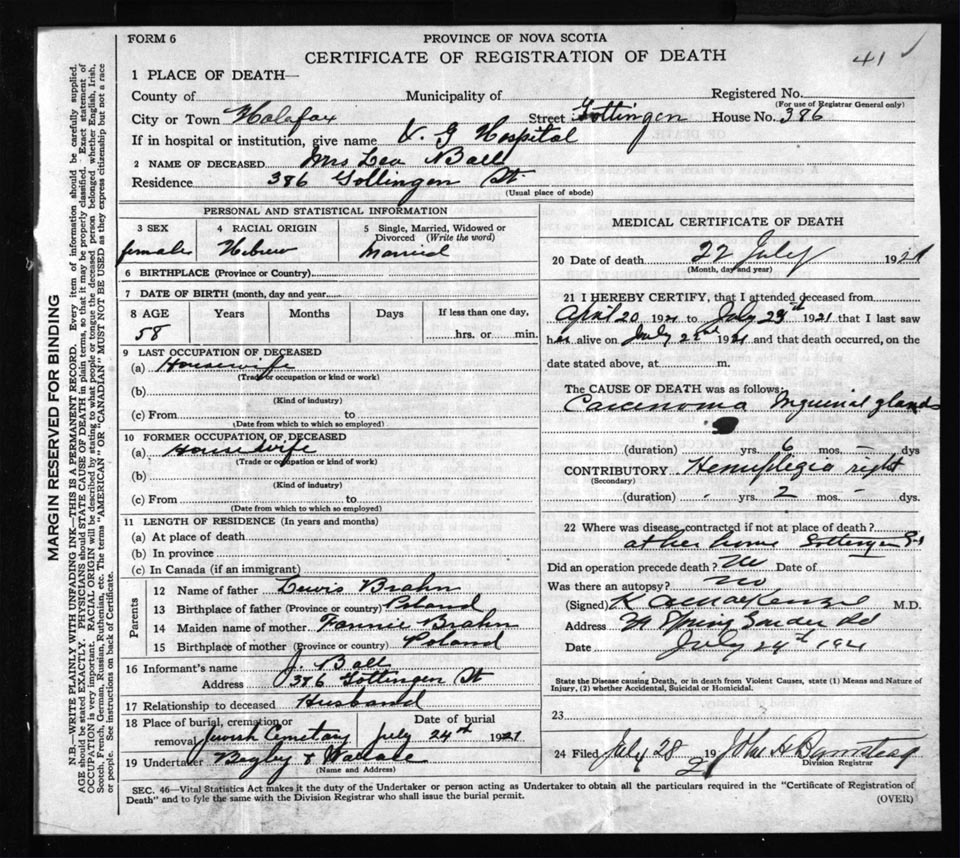 FORM 6
PROVINCE OF NOVA SCOTIA
CERTIFICATE OF REGISTRATION OF DEATH
41
1 PLACE OF DEATH—
County of
Municipality of
Registered No.
(For use of Registrar General only)
City or Town Halafax
Street Gottingen House No. 386
If in hospital or institution, give name V. G Hospital
2 NAME OF DECEASED Mrs Lea Ball
Residence 386 Gottingen St.
(Usual place of abode)
PERSONAL AND STATISTICAL INFORMATION
3 SEX
4 RACIAL ORIGIN
5 Single, Married, Widowed or Divorced (Write the word)
female Hebrew Married
6 BIRTHPLACE (Province or Country)
7 DATE OF BIRTH (month, day and year
8 AGE
Years
Months
Days
If less than one day,
58
hrs. or min.
9 LAST OCCUPATION OF DECEASED
(a) Housewife
(Trade or occupation or kind or work)
(b)
(Kind of industry)
(c) From to
(Date from which to which so employed)
10 FORMER OCCUPATION OF DECEASED
(a) Housewife
(Trade or occupation or kind or work)
(b)
(Kind of industry)
(c) From to
(Date from which to which so employed)
11 LENGTH OF RESIDENCE (In years and months)
(a) At place of death
(b) In province
(c) In Canada (if an immigrant)
Parents
12 Name of father Lewis Brahn
13 Birthplace of father (Province or country) Poland
14 Maiden name of mother Fannie Brahn
15 Birthplace of mother (Province or country) Poland
16 Informant's name J. Ball
Address 386 Gottingen St
17 Relationship to deceased Husband
18 Place of burial, cremation or removal Jewish Cemetary
Date of burial July 24th 1921
19 Undertaker Bigby & Wallace
(Name and Address)
MEDICAL CERTIFICATE OF DEATH
20 Date of death 22 July 1921
(Month, day and year)
21 I HEREBY CERTIFY, that I attended deceased from
April 20 1921 to July 23rd 1921 that I last saw
her alive on July 22nd 1921 and that death occurred, on
date stated above, at m.
The CAUSE OF DEATH was as follows:
Carcenoma Inguenial glands
(duration) yrs. 6 mos. – dys
CONTRIBUTORY Hemiplegia right
(Secondary)
(duration) - yrs. 2 mos. – dys.
22 Where was disease contracted if not at place of death?
at her home Gottengen St
Did an operation precede death? No Date of
Was there an autopsy? No
(Signed) K A MacKenzie M.D.
Address Spring Garden Rd
Date July 24th 1921
State the Disease causing Death, or in death from Violent Causes, state (1) Means and Nature of
Injury, (2) whether Accidental, Suicidal or Homicidal.
23
24 Filed July 28 1921 John H Barnstead
Division Registrar
SEC. 46—Vital Statistics Act makes it the duty of the Undertaker or person acting as Undertaker to obtain all the particulars required in the "Certificate of Registration of
Death" and to fyle the same with the Division Registrar who shall issue the burial permit.
(OVER)
MARGIN RESERVED FOR BINDING
N.B.—WRITE PLAINLY WITH UNFADING INK—THIS IS A PERMANENT RECORD. Every item of information should be carefully supplied.
AGE should be stated EXACTLY. PHYSICIANS should STATE CAUSE OF DEATH in plain terms, so that it may be properly classified. Exact statement of
OCCUPATION is very important. RACIAL ORIGIN will be described by stating to what people or tongue the deceased person belonged whether English, Irish,
Scotch, French, German, Russian, Ruthenian, etc. The terms "AMERICAN" or "CANADIAN" MUST NOT BE USED as they express citizenship but not a race
or people. See instructions on back of Certificate.